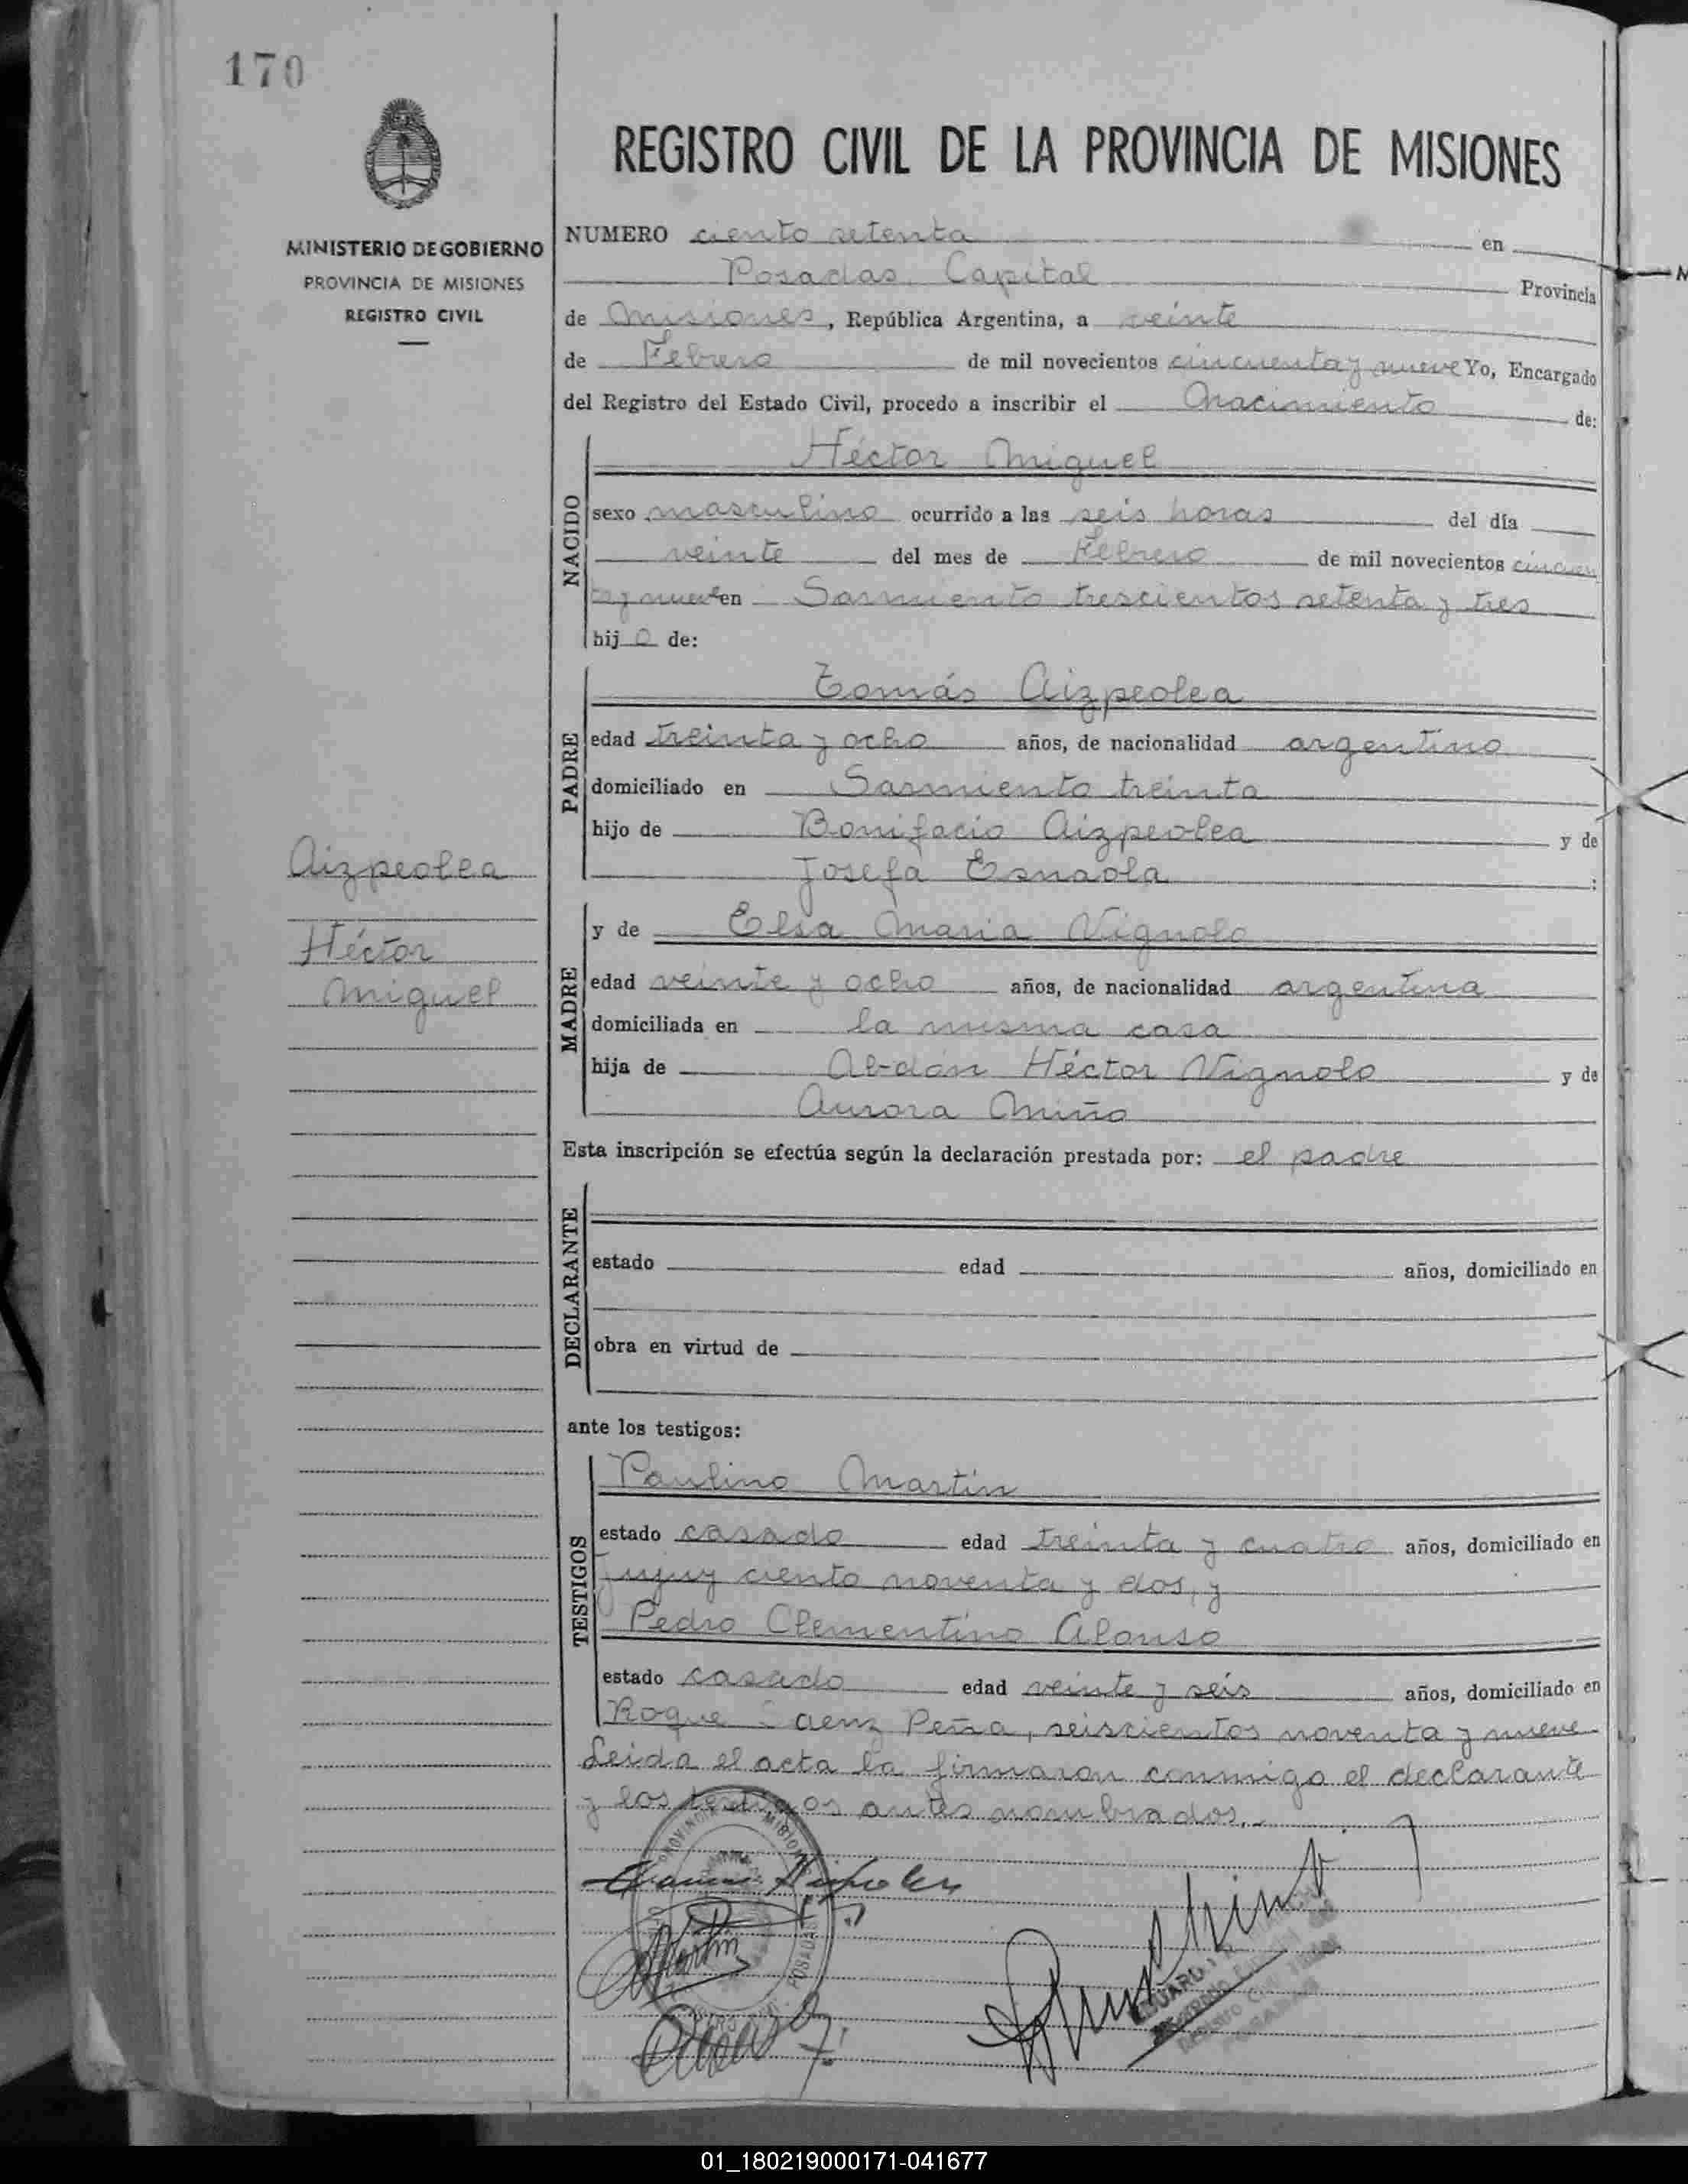 170
REGISTRO CIVIL DE LA PROVINCIA DE MISIONES
MINISTERIO DE GOBIERNO
PROVINCIA DE MISIONES
REGISTRO CIVIL
NUMERO ciento setenta en
Posadas, Capital Provincia
de Misiones, República Argentina, a veinte
de Febrero de mil novecientos cincuenta y nueve Yo, Encargado
del Registro del Estado Civil, procedo a inscribir el Nacimiento de:
NACIDO
Héctor Miguel
sexo masculino ocurrido a las seis horas del día
veinte del mes de Febrero de mil novecientos cincuen
ta y nueve en Sarmiento trescientos setenta y tres
hijo de:
PADRE
Tomás Aizpeolea
edad treinta y ocho años, de nacionalidad argentino
domiciliado en Sarmiento treinta
hijo de Bonifacio Aizpeolea y de
Josefa Esnaola :
Aizpeolea
Héctor
Miguel
MADRE
y de Elsa Maria Vignolo
edad veinte y ocho años, de nacionalidad argentina
domiciliada en la misma casa
hija de Abdón Héctor Vignolo y de
Aurora Miño
Esta inscripción se efectúa según la declaración prestada por: el padre
DECLARANTE
estado edad años, domiciliado en
obra en virtud de
ante los testigos:
TESTIGOS
Paulino Martin
estado casado edad treinta y cuatro años, domiciliado en
Jujuy ciento noventa y dos, y
Pedro Clementino Alonso
estado casado edad veinte y seis años, domiciliado en
Roque Saenz Peña, seiscientos noventa y nueve
Leida el acta la firmaron conmigo el declarante
y los testigos antes nombrados.-
01_180219000171-041677